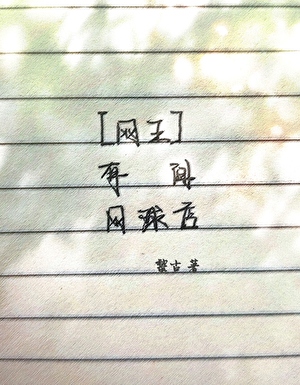 [网王]
有 间
网球店
古 著